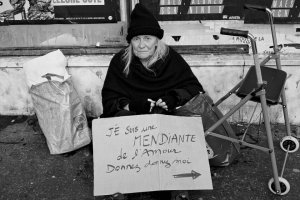 JE Suis une
MENDIANTE
de l'Amour
Donnez donnez moi